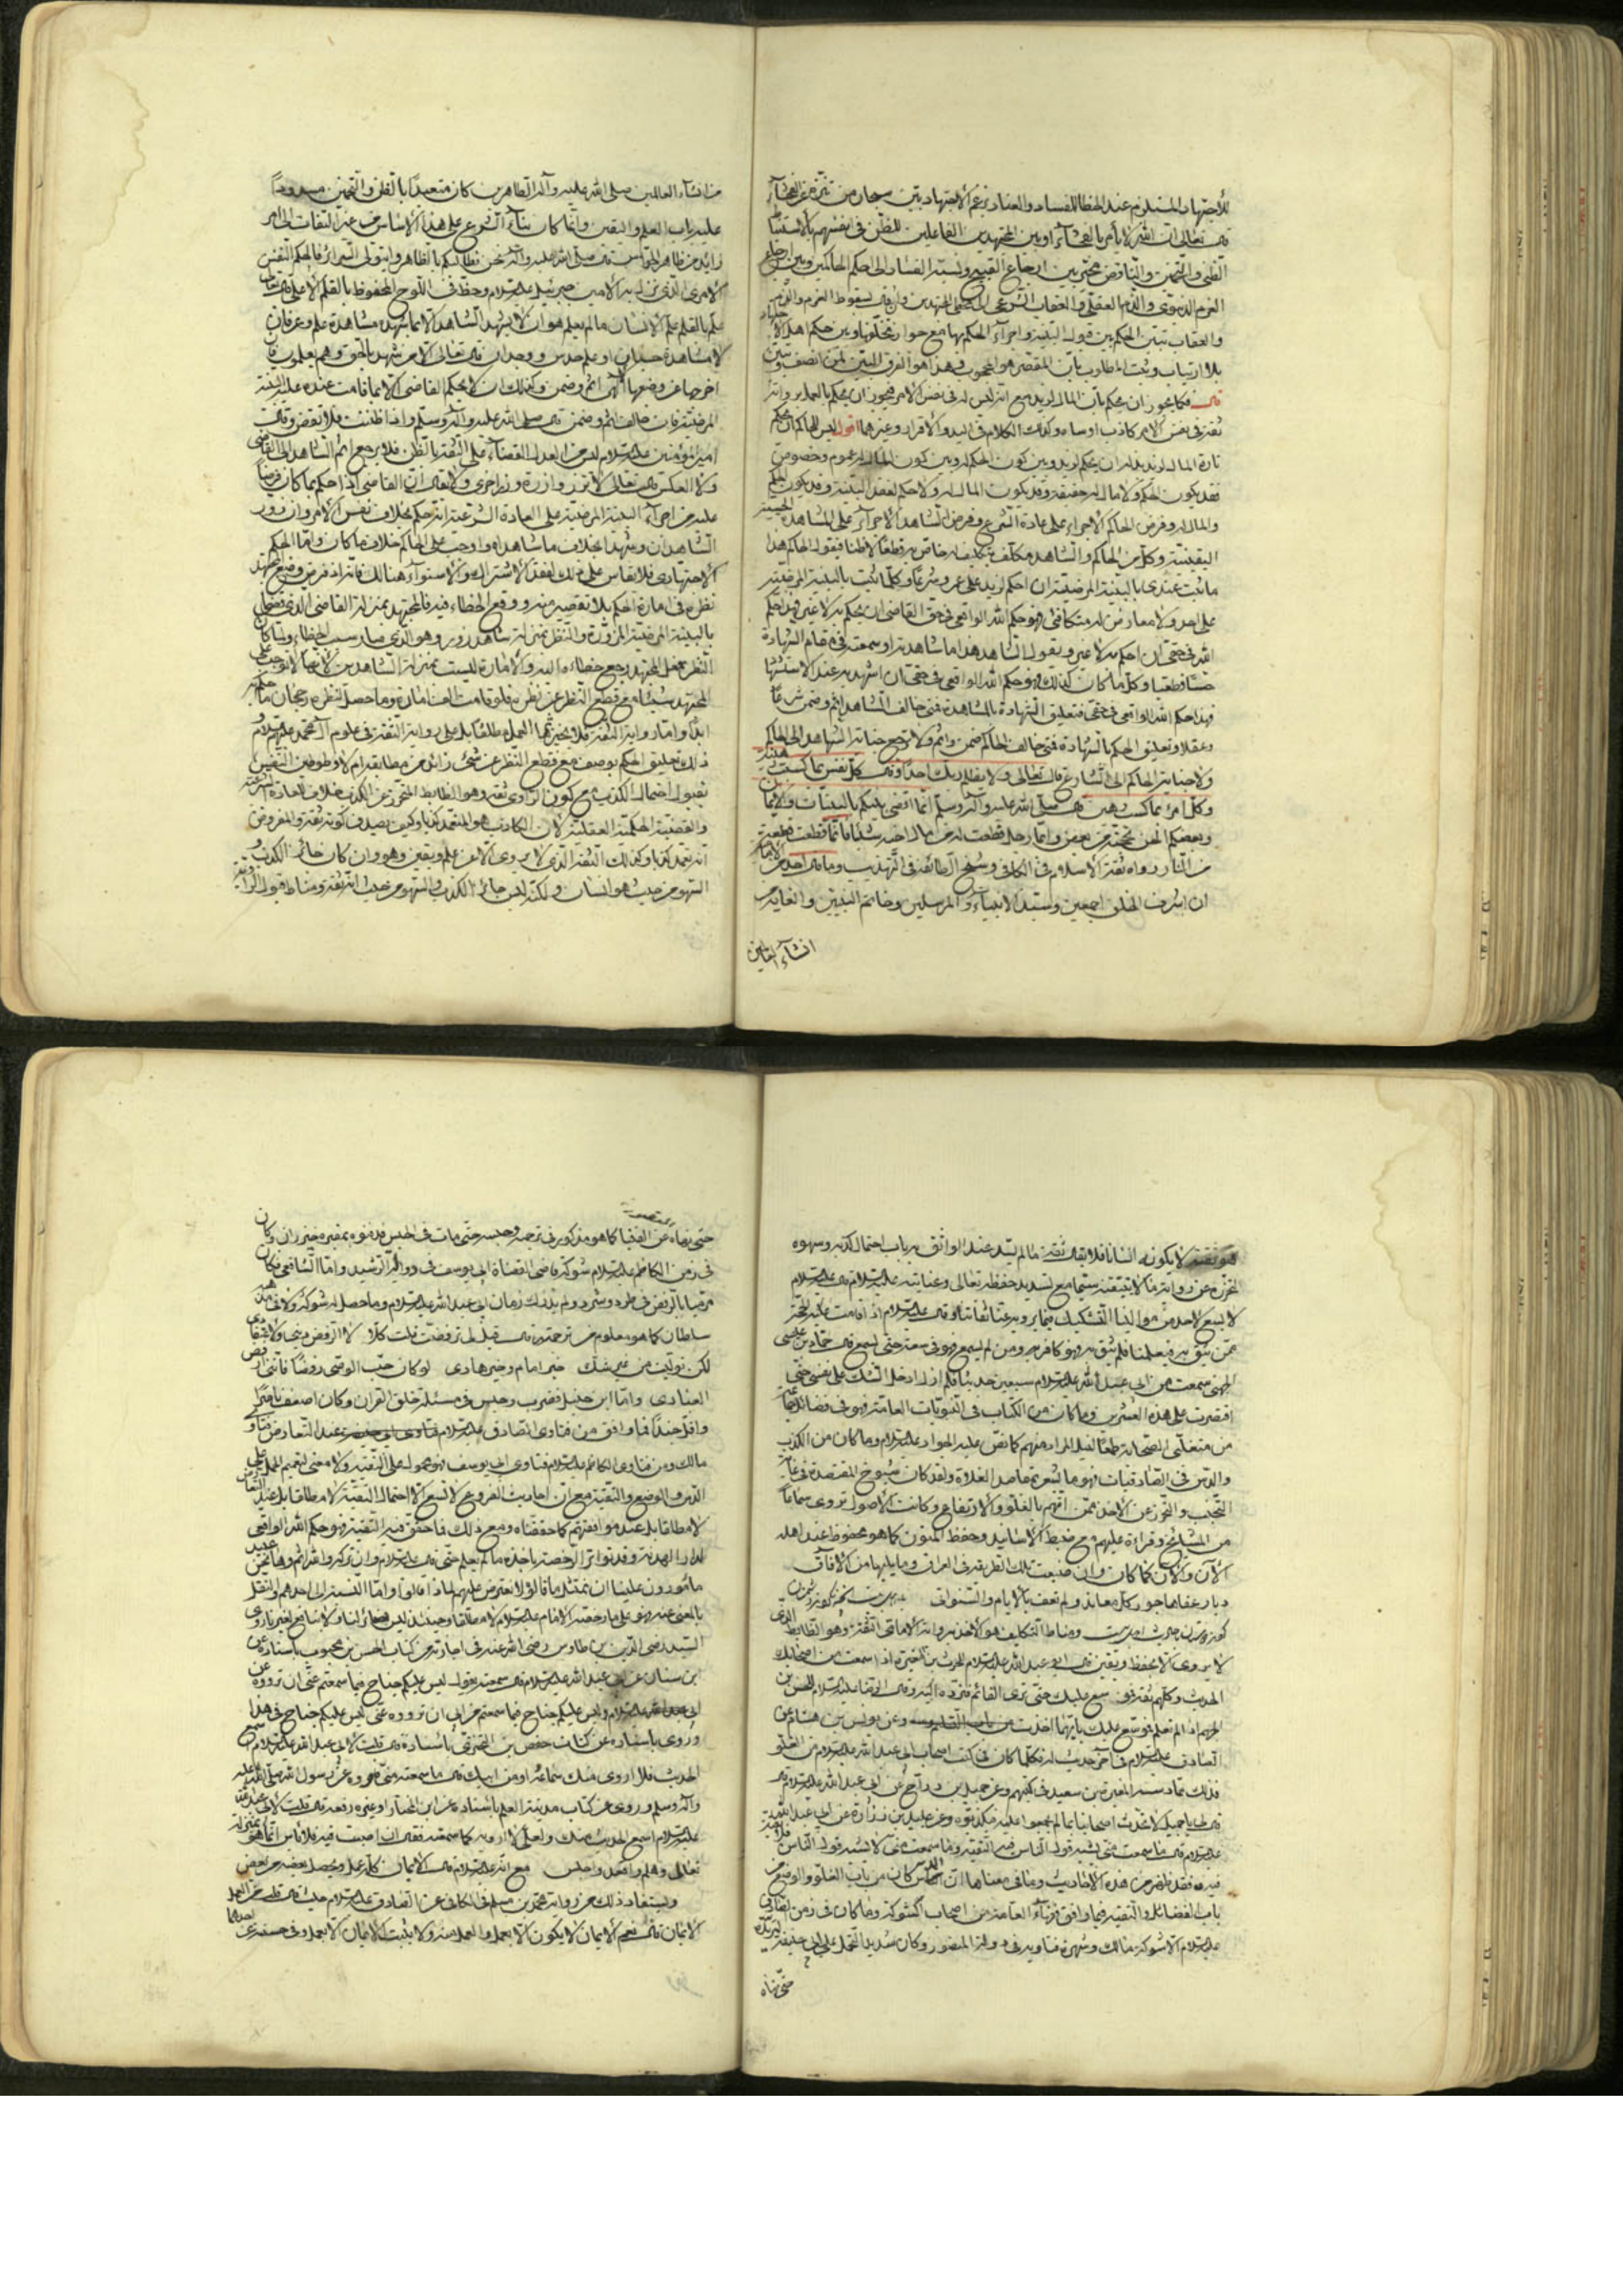 للاجتهاد المستلزم عند الخطا للفساد والعناد بزعم الاجتهاد بين سبحان من تنزه عن الفحشاء
قال تعالى ان الله لا يأمر بالفحشاء وبين المجتهدين الفاعلين للظن في انفسهم بالاستنباط
الظنى والتخمين والتناقض بين ارجاع القبيح ونسبة الفساد الى احكم الحاكمين وبين ارجاع
الغرم الدنيوى والذم العقلى والعقاب الشرعى الى المجتهدين وان قال بسقوط الغرم والذم
والعقاب تبين الحكم بين قبول البينة واجراء الحكم بها مع جواز تخلفها وبين حكم اهل الاجتهاد
بلا ارتياب وثبت المطلوب بان المقصر هو المحجوب وهذا هو الفرق المبين لمن انصف وتبين
قال فكما يجوز ان يحكم بان المال لزيد مع انه ليس له في نفس الامر فيجوز ان يحكم بالعدل وانه
ثقة وفى نفس الامر كاذب او ساه وكذلك الكلام في اليد والاقرار وغيرهما اقول ليس للحاكم ان يحكم
بان المال لزيد بل له ان يحكم لزيد وبين كون الحكم له وبين كون المال له عموم وخصوص
فقد يكون الحكم ولا مال له حقيقة وقد يكون المال له ولا حكم لفقد البينة وقد يكون الحكم
والمال له وفرض الحاكم الاجراء على عادة الشرع وفرض الشاهد الاجراء على المشاهدة الحسية
اليقينية وكل من الحاكم والشاهد مكلف بتكليف خاص به قطعا لا ظنا فيقول الحاكم هذا
ما ثبت عندى بالبينة المرضية ان احكم لزيد على عمرو شرعا وكلما ثبت بالبينة المرضية
على احد ولا معارض له متكافئ فهو حكم الله الواقعى في حق القاضى ان يحكم به لا غير فهذا حكم
الله في حقى ان احكم به لا غير ويقول الشاهد هذا ما شاهدته او سمعته في مقام الشهادة
حسا قطعيا وكل ما كان كذلك فهو حكم الله الواقعى في حقى ان اشهد به عند الاستشهاد
فهذا حكم الله الواقعى في حقى فتعلق الشهادة بالمشاهدة فمتى خالف الشاهد اثم وضمن شرعا
وعقلا وتعلق الحكم بالشهادة فمتى خالف الحاكم ضمن واثم ولا ترجع جناية الشاهد الى الحاكم
ولا جناية الحاكم الى الشارع قال تعالى ولا يظلم ربك احدا وقال كل نفس بما كسبت رهينة
وكل امرئ بما كسب رهين قال صلى الله عليه وآله وسلم انما اقضى بينكم بالبينات والايمان
وبعضكم الحن بحجته من بعض وايما رجل قطعت له من مال اخيه شيئا فانما قطعت له قطعة
من النار رواه ثقة الاسلام في الكافى وشيخ الطائفة في التهذيب وما قال احد من الاسلام
ان اشرف الخلق اجمعين وسيد الانبياء والمرسلين وخاتم النبيين والغاية من
انشاء العالمين
من انشاء العالمين صلى الله عليه وآله الطاهرين كان متعبدا بالظن والتخمين مسدودا
عليه باب العلم واليقين وانما كان بناء الشرع على هذا الاساس من غير التفات الى امر
زايد من ظاهر الحواس قال صلى الله عليه وآله نحن نطالبكم بالظاهر والله يتولى السرائر فالحكم النفس
الامرى الذى نزل به الامين جبرئيل عليه السلام وحفظ في اللوح المحفوظ بالقلم الاعلى قال تعالى
علم بالقلم علم الانسان ما لم يعلم هو ان لا يشهد الشاهد الا بما شهده مشاهدة علم وعرفان
لا مشاهدة حسبان او علم حدس ووجدان قال تعالى الا من شهد بالحق وهم يعلمون فان
اخرجها عن وضعها الهى اثم وضمن وكذلك ان لا يحكم القاضى الا بما قامت عنده عليه البينة
المرضية فان خالف اثم وضمن قال صلى الله عليه وآله وسلم واذا ظننت فلا تقض وقال
امير المؤمنين عليه السلام ليس من العدل القضاء على الثقة بالظن فلا يرجع اثم الشاهد الى القاضى
ولا العكس قال تعالى لا تزر وازرة وزر اخرى ولا يقال ان القاضى اذا حكم بما كان فرضا
عليه من اجراء البينة المرضية على العادة الشرعية انه حكم بخلاف نفس الامر وان زور
الشاهدان وشهدا بخلاف ما شاهداه واوجب على الحاكم خلاف ما كان واما الحكم
الاجتهادى فلا يقاس على ذلك لفقد الاشتراك والاستواء هنالك فانه اذ فرض وضع المجتهد
نظره في امارة الحكم بلا تقصير منه ووقع الخطاء فيه فالمجتهد بمنزلة القاضى الذى
بالبينة المرضية المزورة والنظر بمنزلة شاهد زور وهو الذى صار سبب الخطاء ولما كان
النظر فعل المجتهد رجع خطاءه اليه والامارة ليست بمنزلة الشاهدين لانها لا توجب على
المجتهد شيئا مع قطع النظر عن نظره فلو قامت الف امارة وما حصل لنظره رجحان ما حكم به
ابدا واما رواية الثقة فلا يخيرنا العمل مطلقا بل على رواية الثقة في علوم آل محمد عليهم السلام
ذلك تعليق الحكم بوصف مع قطع النظر عن شئ زائد من مطابقة ام لا وطوطين النفس
بقبول احتمال الكذب مع كون الراوى ثقة وهو الضابط المتحرز عن الكذب خلاف العادة الشرعية
والقضية الحكمية العقلية لان الكاذب هو المتعمد كذبا وكيف يصدق كونه ثقة والمفروض
انه يتعمد كذبا وكذلك الثقة الذى لا يروى الا عن علم ويقين وهو وان كان جائز الكذب
السهو من حيث هو انسان ولكنه ليس جائز الكذب والسهو من حيث انه ثقة ومناط قبول الرواية
هو ثقة لا بكونه انسانا فلا يقال ثقة ما لم يسد عند الواثق به باب احتمال كذبه وسهوه
لتحرزه عن رواية ما لا يتيقنه سيما مع تسديد حفظه تعالى وعنايته عليه السلام قال عليه السلام
لا يسع لاحد من موالينا التشكيك فيما يرويه عنا ثقاتنا وقال عليه السلام اذا قامت عليه الحجة
ممن يثق به في علمنا فلم يثق به فهو كافر ومن لم يسمع فهو في سعة حتى يسمع قال حماد بن عيسى
الجهنى سمعت من ابى عبد الله عليه السلام سبعين حديثا فلم ازل ادخل الشك على نفسى حتى
اقتصرت على هذه العشرين وما كان من الكتاب في النبويات العامية فهو في فضائل
من متغلبى الصحابة طمعا لنيل المراد منهم كما نص عليه الجواد عليه السلام وما كان من الكذب
والدس في الصادقيات فهو ما يشعر بمقاصد الغلاة ولقد كان شيوخ المقتصدة في غاية
التجنب والتحرز عن الاخذ ممن اتهم بالغلو والارتفاع وكانت الاصول تروى سماعا
من المشايخ وقراءة عليهم مع ضبط الاسانيد وحفظ المتون كما هو محفوظ عند اهله
الآن والآن كما كان وان ضيعت تلك الطريقة في العراق وما يليها من الآفاق
ديار عفاها جور كل معاند ولم تعف بالايام والسنوات
ومناط التكليف هو الاخذ برواية الامامى الثقة وهو الضابط الذى
لا يروى الا بحفظ ويقين قال ابو عبد الله عليه السلام للحرث بن المغيرة اذا سمعت من اصحابك
الحديث وكلهم ثقة فموسع عليك حتى ترى القائم فترده اليه وقال الرضا عليه السلام للحسن بن
الجهم اذا لم تعلم فموسع عليك بايهما اخذت من باب التسليم وعن يونس بن هشام عن
الصادق عليه السلام في آخر حديث له فكلما كان في كتب اصحاب ابى عبد الله عليه السلام من الغلو
فذلك مما دسه المغيرة بن سعيد في كتبهم وعن جميل بن دراج عن ابى عبد الله عليه السلام قال
قال لى يا جميل لا تحدث اصحابنا بما لم يجمعوا عليه فيكذبوه وعن عبيد بن زرارة عن ابى عبد الله
عليه السلام قال ما سمعت منى يشبه قول الناس فيه التقية وما سمعت منى لا يشبه قول الناس فلا تقية
فيه فقد ظهر من هذه الاحاديث وما في معناها ان الدس كان من باب الغلو والوضع من
باب الفضائل والتقية فيما وافق فتياء العامة من اصحاب الشوكة وما كان في زمن الصادق
عليه السلام الا شوكة مالك وشهرة فتاويه في دولة المنصور وكان شديد التحمل على ابى حنيفة
حتى نهاه
حتى نهاه عن الفتيا كما هو مذكور في ترجمته وحبسه حتى مات في الحبس فدفنوه بمقبرة خيزران وكان
في زمن الكاظم عليه السلام شوكة قاضى القضاة ابى يوسف في دولة الرشيد واما الشافعى فكان
مرميا بالرفض في طرد وشرد ولم يدرك زمان ابى عبد الله عليه السلام وما حصل له شوكة ولا نفاذ عند
سلطان كما هو معلوم من ترجمته قال قيل لى ترفضت قلت كلا ما الرفض دينى ولا اعتقادى
لكن توليت من غير شك خير امام وخير هادى لو كان حب الوصى رفضا فاننى ارفض
العبادى واما ابن حنبل فضرب وحبس في مسئلة خلق القرآن وكان اضعف ناصرا
واقل جندا فما وافق من فتاوى الصادق عليه السلام عند التعارض فتاوى
مالك ومن فتاوى الكاظم عليه السلام فتاوى ابى يوسف فهو محمول على التقية ولا معنى لتعميم الحمل على
الدس والوضع والتقية مع ان احاديث الفروع لا تسع الا احتمال التقية لا مطلقا بل عند التعارض
لا مطلقا بل عند موافقتهم كما حققناه ومع ذلك فما حقق فيه التقية فهو حكم الله الواقعى
لدار الهدنة وقد تواتر الرخصة باخذه ما لم يعلم حتى قال عليه السلام وان تركه والله اثم وها نحن عبيد
مأمورون علينا ان نمتثل ما قالوا ولا نعترض عليهم لماذا قالوا واما النسبة الى احدهم والنقل
بالمعنى عنه فهو على ما رخصه الامام عليه السلام لا مطلقا وحينئذ ليس
السيد رضى الدين بن طاوس رضى الله عنه في اجازته من كتاب الحسن بن محبوب باسناده عن
ابن سنان عن ابى عبد الله عليه السلام قال سمعته يقول ليس عليكم جناح فيما سمعتم عنى ان ترووه عن
ابى عليه السلام وليس عليكم جناح فيما سمعتم من ابى ان ترووه عنى ليس عليكم جناح في هذا
وروى باسناده عن كتاب حفص بن البخترى باسناده قال قلت لابى عبد الله عليه السلام اسمع
الحديث فلا ادرى منك سماعه او من ابيك قال ما سمعته منى فاروه عن رسول الله صلى الله عليه
وآله وسلم وروى عن كتاب مدينة العلم باسناده عن ابن المختار او غيره رفعه قال قلت لابى عبد الله
عليه السلام اسمع الحديث منك ولعلى لا ارويه كما سمعته فقال ان اصبت فيه فلا باس انما هو بمنزلة
تعالى وهلم واقعد واجلس مع انه عليه السلام قال الايمان كله عمل ويحصل بعضه من بعض
ويستفاد ذلك من رواية محمد بن مسلم في الكافى عن الصادق عليه السلام حيث قال قلت العمل
الايمان قال نعم الايمان لا يكون الا بعمل والعمل منه ولا يثبت الايمان الا بعمل وفى حسنة عن احدهما